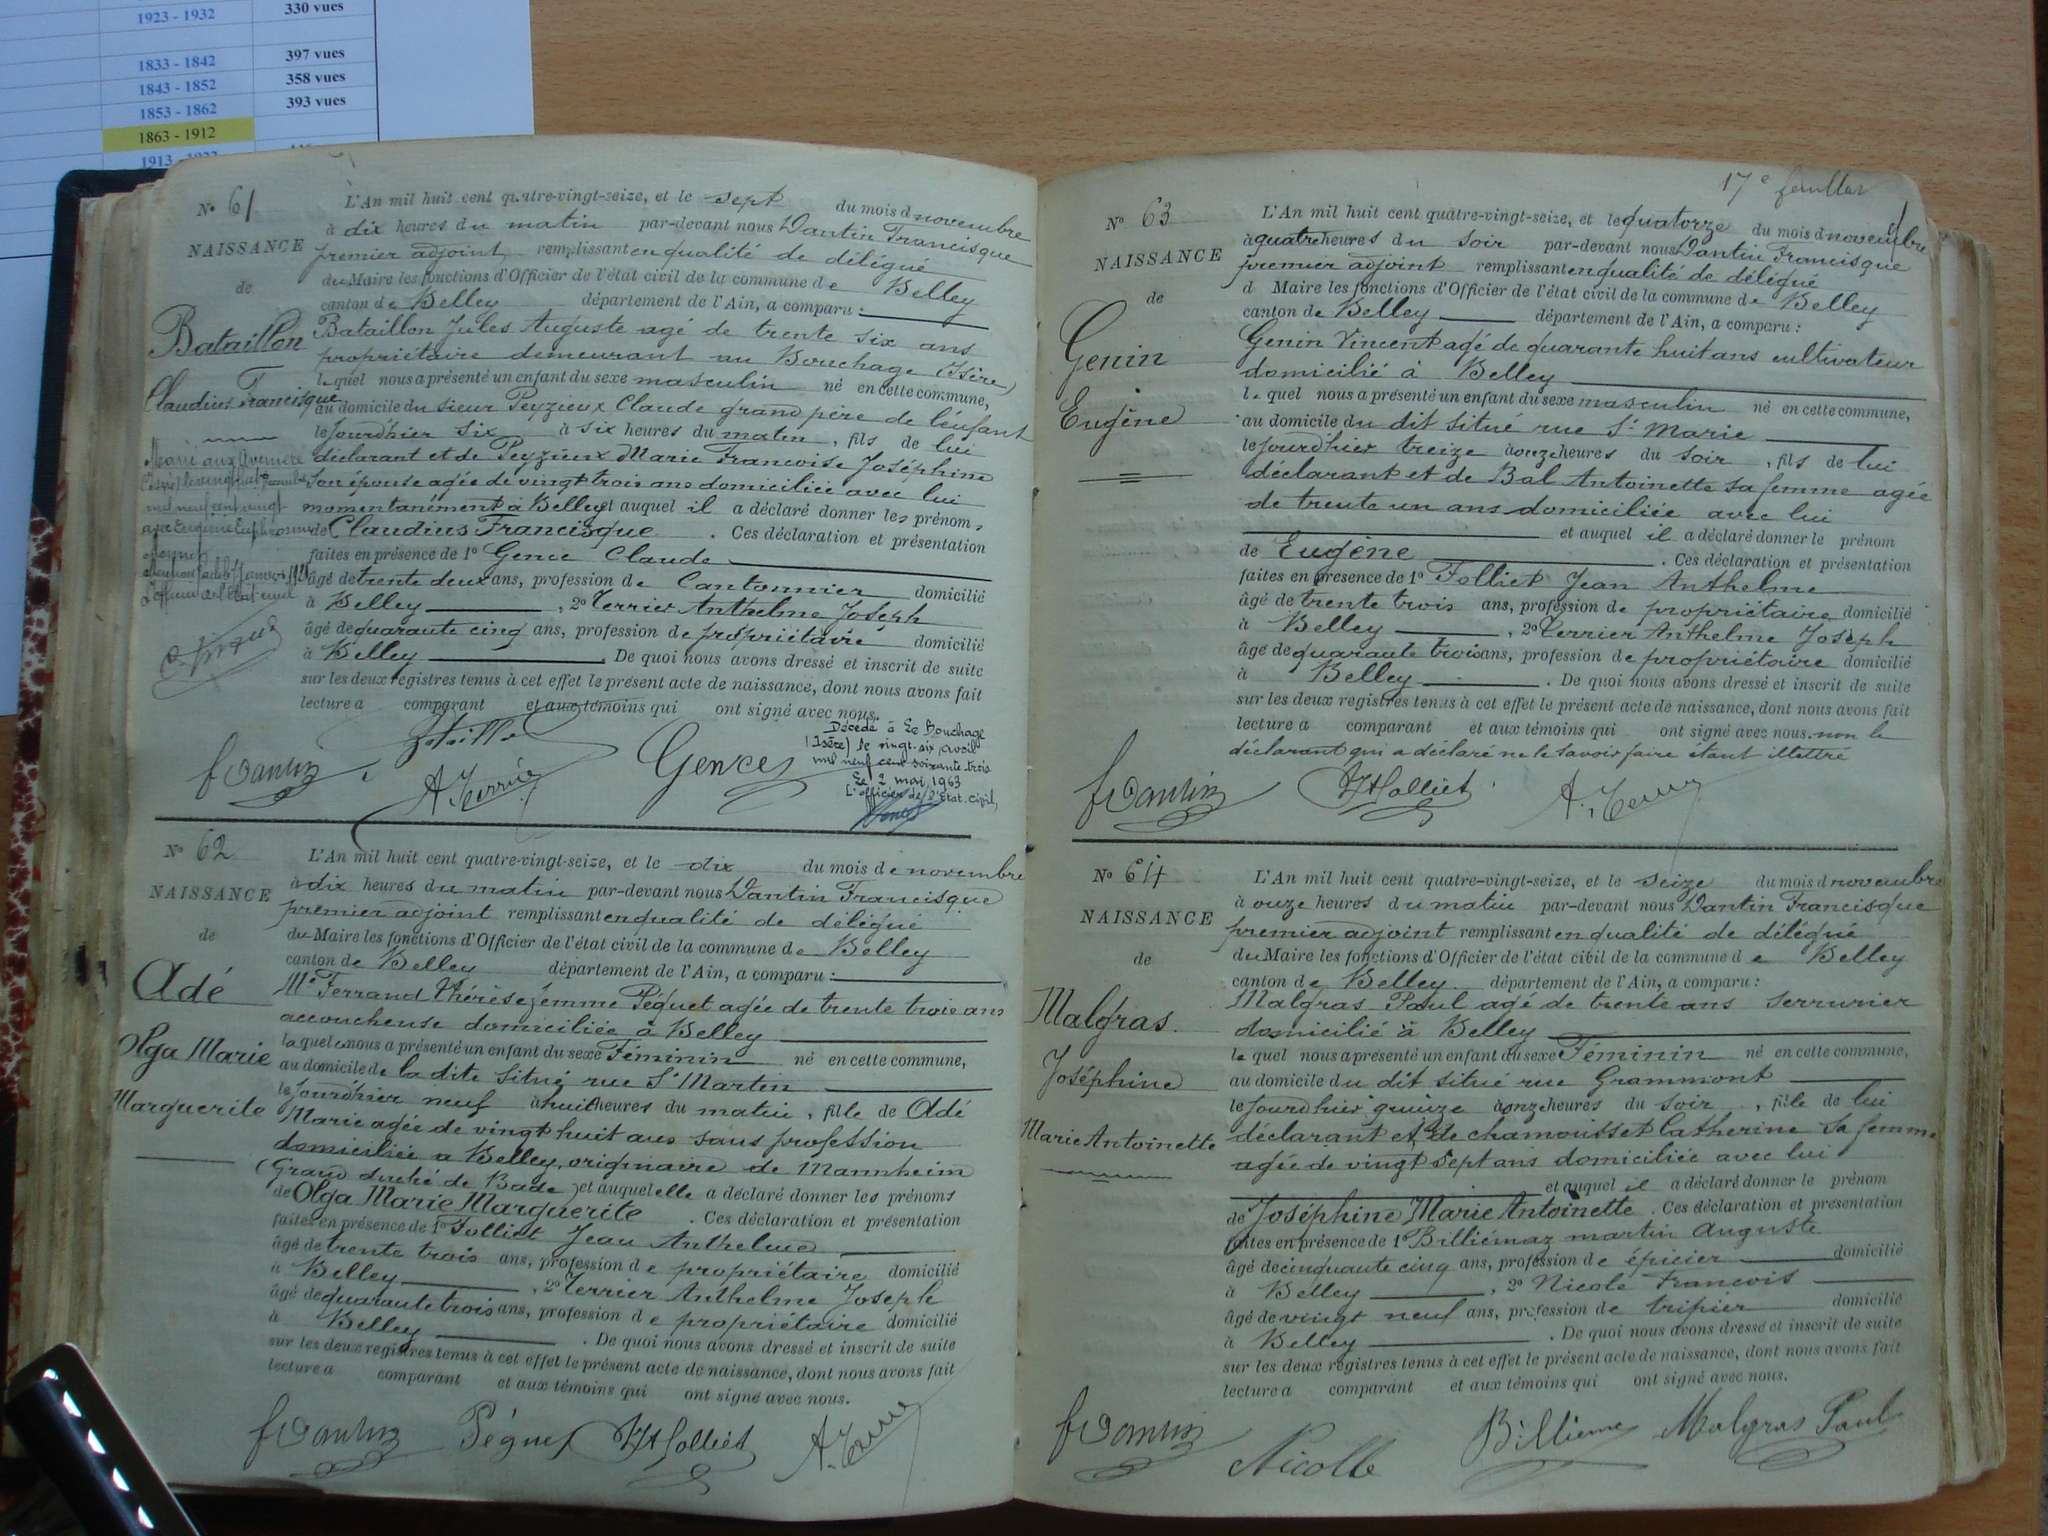 1923 - 1932 330 vues
1833 - 1842 397 vues
1843 - 1852 358 vues
1853 - 1862 393 vues
1863 - 1912
1913
N° 61
NAISSANCE
de
Bataillon
Claudius Francisque
L'An mil huit cent quatre-vingt-seize, et le sept du mois d novembre
à dix heures du matin par-devant nous Dantin Francisque
premier adjoint remplissant en qualité de délégué
du Maire les fonctions d'Officier de l'état civil de la commune de Belley
canton de Belley département de l'Ain, a comparu :
Bataillon Jules Auguste agé de trente six ans
propriétaire demeurant au Bouchage (Isère)
lequel nous a présenté un enfant du sexe masculin né en cette commune,
au domicile du sieur Peyzieux Claude grand père de l'enfant
le jourd'hier six à six heures du matin, fils de lui
déclarant et de Peyzieux Marie Francoise Joséphine
son épouse agée de vingt trois ans domiciliée avec lui
momentanément à Belley et auquel il a déclaré donner les prénoms
de Claudius Francisque . Ces déclaration et présentation
faites en présence de 1° Gence Claude
âgé de trente deux ans, profession de Cantonnier domicilié
à Belley , 2° Terrier Anthelme Joseph
âgé de quarante cinq ans, profession de propriétaire domicilié
à Belley . De quoi nous avons dressé et inscrit de suite
sur les deux registres tenus à cet effet le présent acte de naissance, dont nous avons fait
lecture a comparant et aux témoins qui ont signé avec nous.
Décédé à Le Bouchage
(Isère) le vingt-six avril
mil neuf cent soixante trois
Le 2 mai 1963
L'officier de l'état-civil,
f Dantin A. Terrier Gence
N° 62
NAISSANCE
de
Adé
Olga Marie
Marguerite
L'An mil huit cent quatre-vingt-seize, et le dix du mois de novembre
à dix heures du matin par-devant nous Dantin Francisque
premier adjoint remplissant en qualité de délégué
du Maire les fonctions d'Officier de l'état civil de la commune de Belley
canton de Belley département de l'Ain, a comparu :
Me Ferrand Thérèse femme Péguet agée de trente trois ans
accoucheuse domiciliée à Belley
laquelle nous a présenté un enfant du sexe Féminin né en cette commune,
au domicile de la dite situé rue St Martin
le jourd'hier neuf à huit heures du matin, fille de Adé
Marie agée de vingt huit ans sans profession
domiciliée a Belley, originaire de Mannheim
(Grand duché de Bade) et auquel elle a déclaré donner les prénoms
de Olga Marie Marguerite . Ces déclaration et présentation
faites en présence de 1° Folliet Jean Anthelme
âgé de trente trois ans, profession de propriétaire domicilié
à Belley , 2° Terrier Anthelme Joseph
âgé de quarante trois ans, profession de propriétaire domicilié
à Belley . De quoi nous avons dressé et inscrit de suite
sur les deux registres tenus à cet effet le présent acte de naissance, dont nous avons fait
lecture a comparant et aux témoins qui ont signé avec nous.
f Dantin Péguet Folliet A. Terrier
17e feuillet
N° 63
NAISSANCE
de
Genin
Eugène
L'An mil huit cent quatre-vingt-seize, et le quatorze du mois d novembre
à quatre heures du soir par-devant nous Dantin Francisque
premier adjoint remplissant en qualité de délégué
d Maire les fonctions d'Officier de l'état civil de la commune de Belley
canton de Belley département de l'Ain, a comparu :
Genin Vincent agé de quarante huit ans cultivateur
domicilié à Belley
lequel nous a présenté un enfant du sexe masculin né en cette commune,
au domicile du dit situé rue St Marie
le jourd'hier treize à onze heures du soir, fils de lui
déclarant et de Bal Antoinette sa femme agée
de trente un ans domiciliée avec lui
et auquel il a déclaré donner le prénom
de Eugène . Ces déclaration et présentation
faites en présence de 1° Folliet Jean Anthelme
âgé de trente trois ans, profession de propriétaire domicilié
à Belley , 2° Terrier Anthelme Joseph
âgé de quarante trois ans, profession de propriétaire domicilié
à Belley . De quoi nous avons dressé et inscrit de suite
sur les deux registres tenus à cet effet le présent acte de naissance, dont nous avons fait
lecture a comparant et aux témoins qui ont signé avec nous. non le
déclarant qui a déclaré ne le savoir faire étant illettré
f Dantin Folliet A. Terrier
N° 64
NAISSANCE
de
Malgras
Joséphine
Marie Antoinette
L'An mil huit cent quatre-vingt-seize, et le seize du mois d novembre
à onze heures du matin par-devant nous Dantin Francisque
premier adjoint remplissant en qualité de délégué
du Maire les fonctions d'Officier de l'état civil de la commune de Belley
canton de Belley département de l'Ain, a comparu :
Malgras Paul agé de trente ans serrurier
domicilié à Belley
lequel nous a présenté un enfant du sexe Féminin né en cette commune,
au domicile du dit situé rue Grammont
le jourd'hier quinze à onze heures du soir, fille de lui
déclarant et de chamousset Catherine sa femme
agée de vingt sept ans domiciliée avec lui
et auquel il a déclaré donner le prénom
de Joséphine Marie Antoinette . Ces déclaration et présentation
faites en présence de 1° Billiemaz martin Auguste
âgé de cinquante cinq ans, profession de épicier domicilié
à Belley , 2° Nicole Francois
âgé de vingt neuf ans, profession de tripier domicilié
à Belley . De quoi nous avons dressé et inscrit de suite
sur les deux registres tenus à cet effet le présent acte de naissance, dont nous avons fait
lecture a comparant et aux témoins qui ont signé avec nous.
f Dantin Nicolle Billieme Malgras Paul